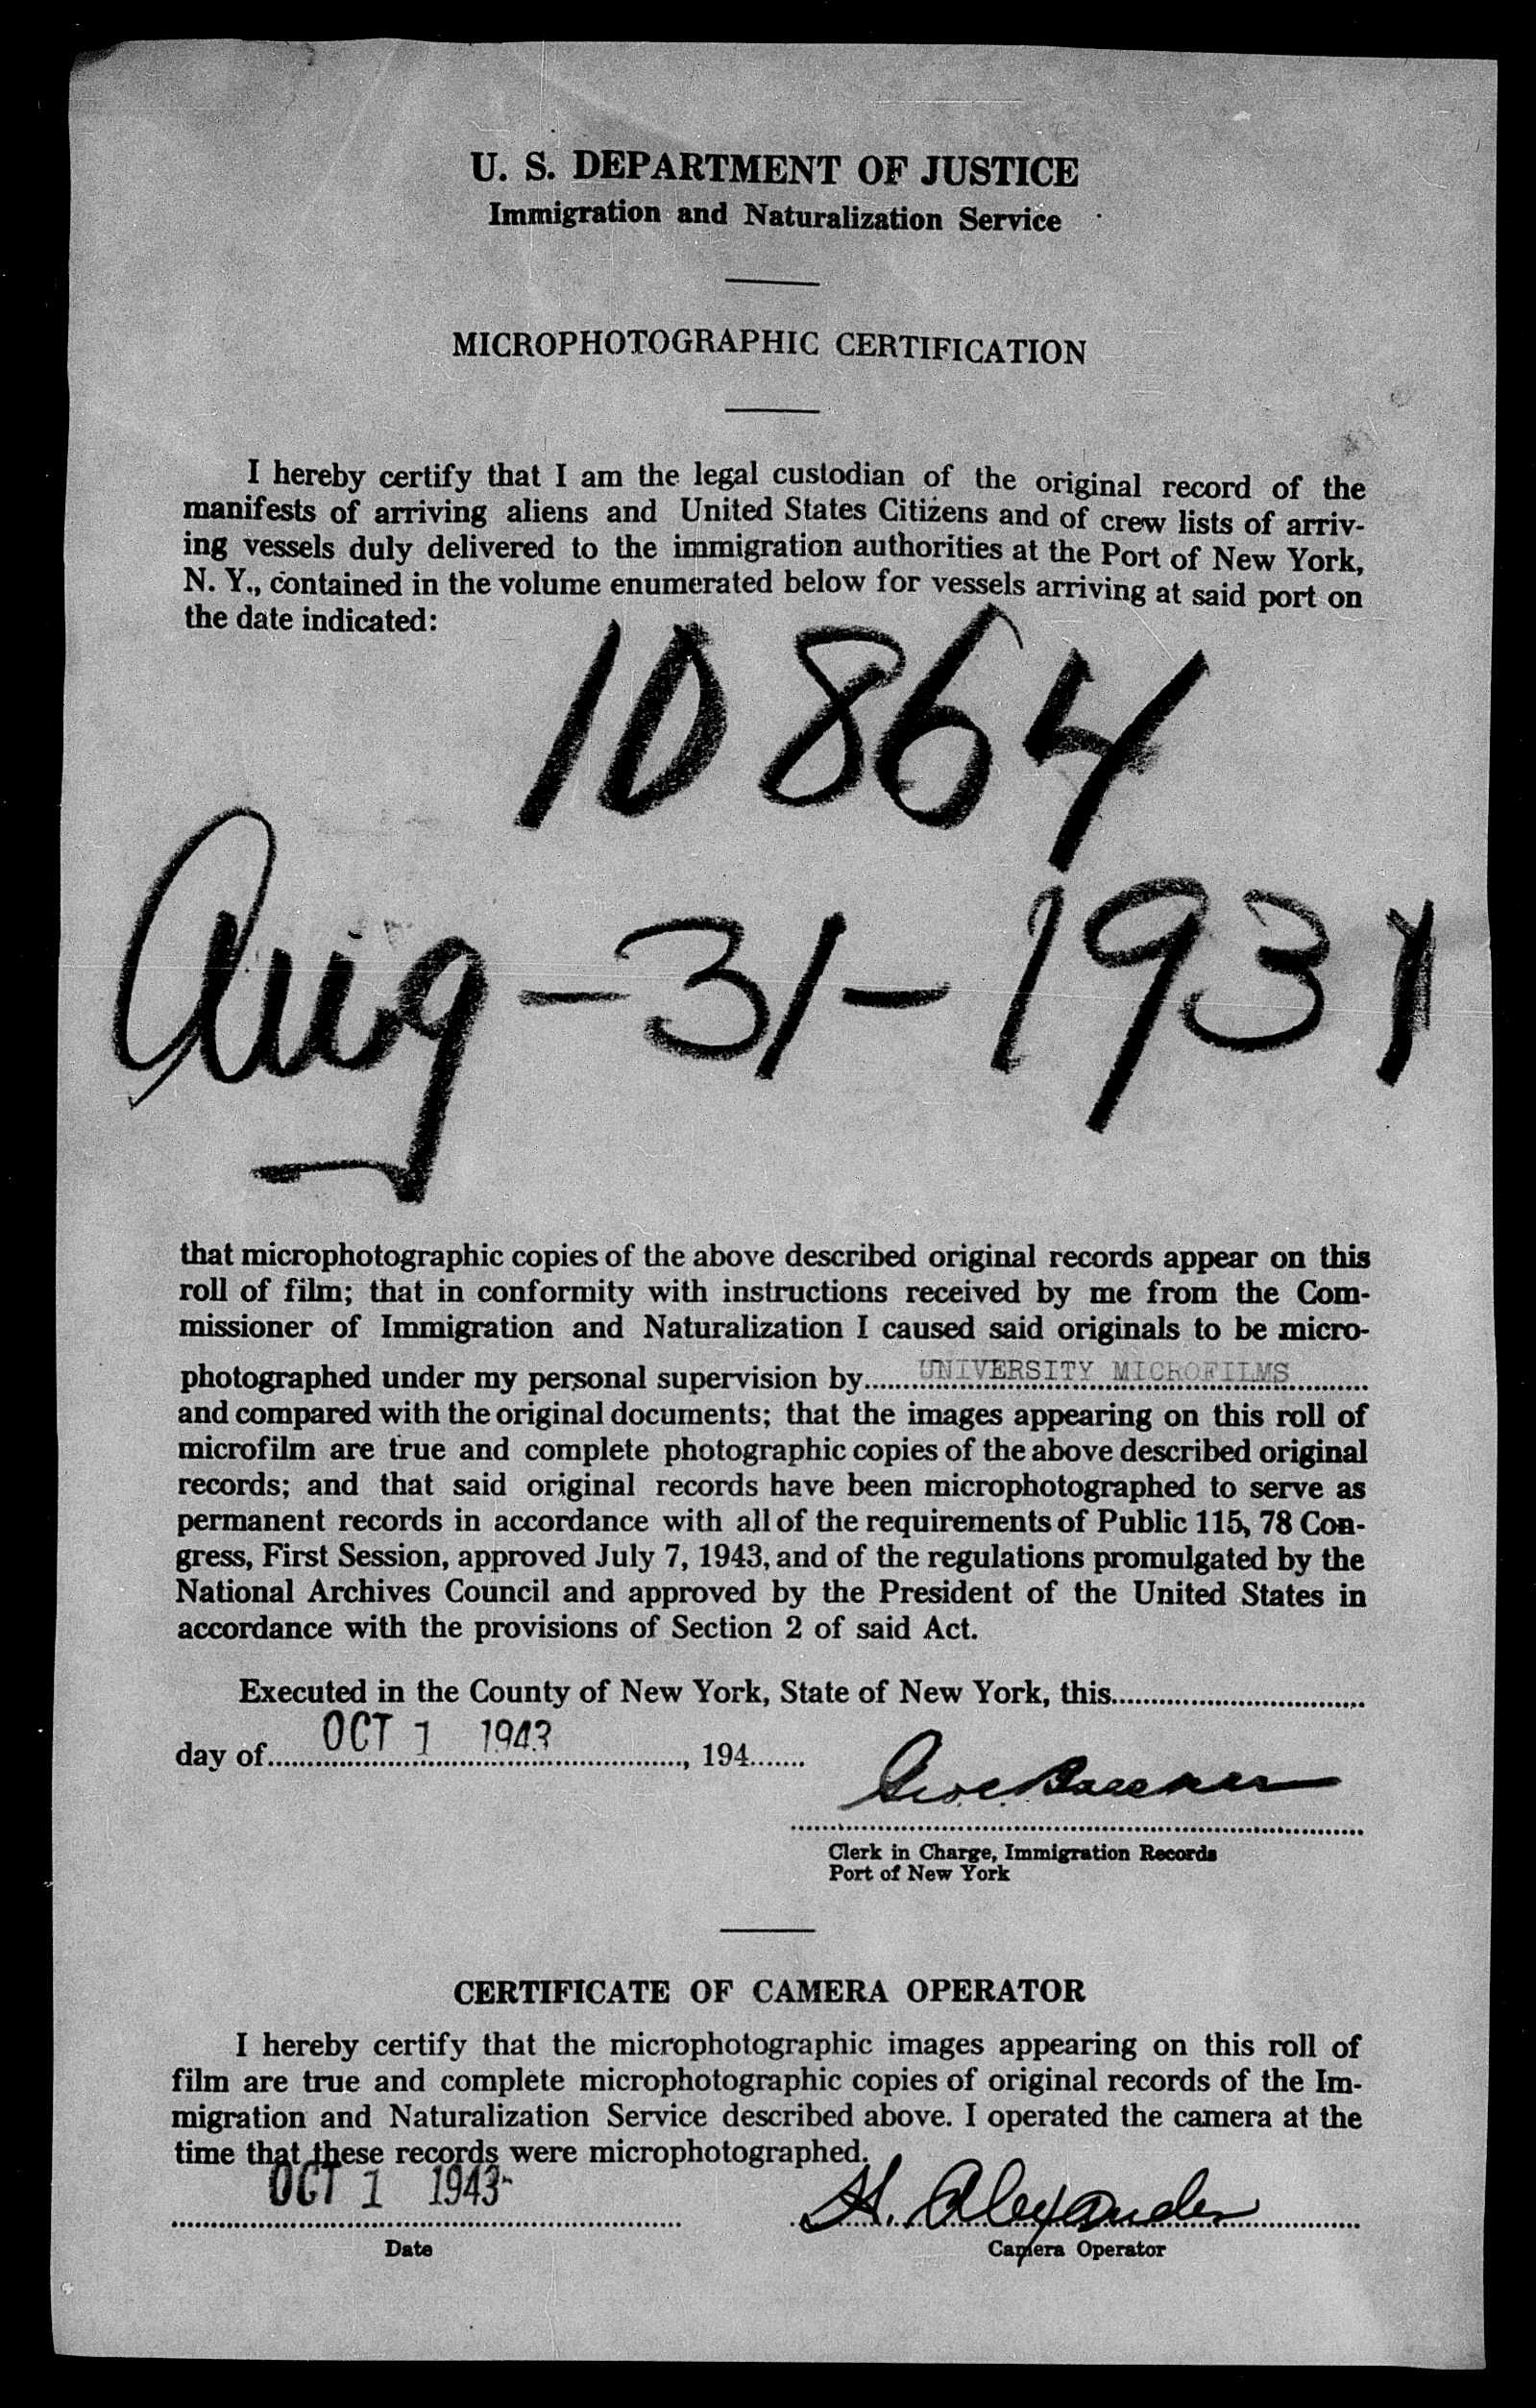 U. S. DEPARTMENT OF JUSTICE
Immigration and Naturalization Service
MICROPHOTOGRAPHIC CERTIFICATION
I hereby certify that I am the legal custodian of the original record of the
manifests of arriving aliens and United States Citizens and of crew lists of arriv-
ing vessels duly delivered to the immigration authorities at the Port of New York,
N. Y., contained in the volume enumerated below for vessels arriving at said port on
the date indicated:
10864
Aug-31-1931
that microphotographic copies of the above described original records appear on this
roll of film; that in conformity with instructions received by me from the Com-
missioner of Immigration and Naturalization I caused said originals to be micro-
photographed under my personal supervision by UNIVERSITY MICROFILMS
and compared with the original documents; that the images appearing on this roll of
microfilm are true and complete photographic copies of the above described original
records; and that said original records have been microphotographed to serve as
permanent records in accordance with all of the requirements of Public 115, 78 Con-
gress, First Session, approved July 7, 1943, and of the regulations promulgated by the
National Archives Council and approved by the President of the United States in
accordance with the provisions of Section 2 of said Act.
Executed in the County of New York, State of New York, this
day of OCT 1 1943, 194
Clerk in Charge, Immigration Records
Port of New York
CERTIFICATE OF CAMERA OPERATOR
I hereby certify that the microphotographic images appearing on this roll of
film are true and complete microphotographic copies of original records of the Im-
migration and Naturalization Service described above. I operated the camera at the
time that these records were microphotographed.
OCT 1 1943 H. Alexander
Date Camera Operator